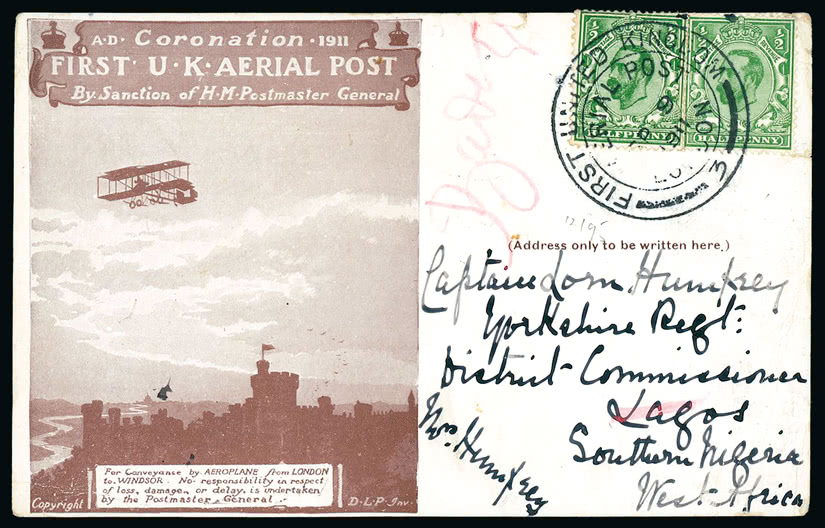 A·D· Coronation · 1911
FIRST U·K·AERIAL POST
By Sanction of H·M·Postmaster General
For Conveyance by AEROPLANE from LONDON
to WINDSOR. No responsibility in respect
of loss, damage, or delay, is undertaken
by the Postmaster General.
Copyright
D·L·P· Inv.
HALFPENNY
HALFPENNY
FIRST UNITED KINGDOM
AERIAL POST
LONDON
3
(Address only to be written here.)
Captain Lorn Humfrey
Yorkshire Regt:
District Commissioner
Lagos
Southern Nigeria
West Africa
Mrs Humfrey